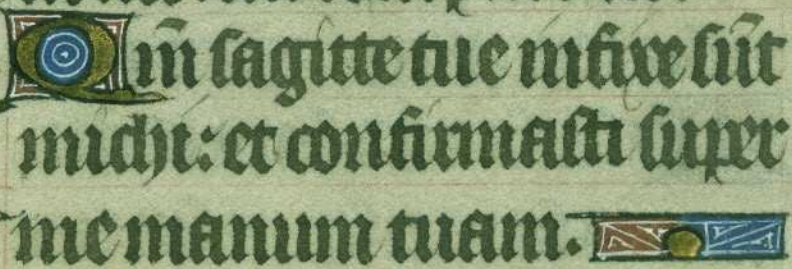 Qm̄ sagitte tue infixe sūt
michi: et confirmasti super
me manum tuam.